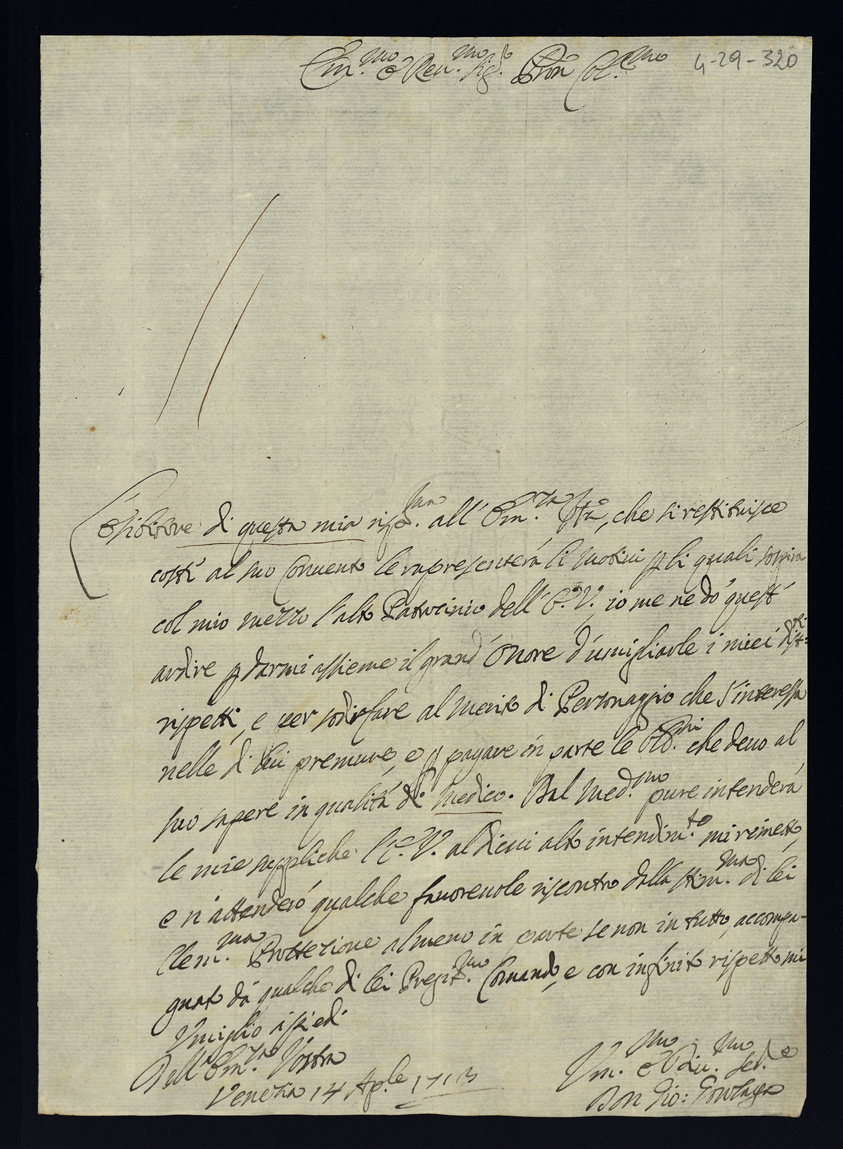 Em.mo e Reu.mo Sig.r Pron Col.mo 4-29-320
di questa mia all' Em.za V.ra, che si restituisce
costì al suo Conuento le rapresenterà li motiui p li quali sospira
col mio mezzo l'alto Patrocinio dell' E. V., io me ne dò quest'
ardire p darmi assieme il grand' Onore d'umigliarle i miei
rispetti, e per sodisfare al merito di Personaggio che s'interessa
nelle di lui premure, e p pagare in parte le che deuo al
suo sapere in qualità di Medico. Dal Med.mo pure intenderà
le mie suppliche l'E. V. al di cui alto intendim.to mi rimetto,
e n'attenderò qualche fauoreuole riscontro dalla stim.ma di lei
Clem.ma Prottetione almeno in parte se non in tutto accompa-
gnato dà qualche di lei Pregiat.mo Comando, e con infinito rispetto mi
Vmiglio à piedi
Dell' Em.za Vostra
Venetia 14 Ap.le 1713
Vm.mo e Diu.mo Ser.e
Don Gio: Gonzaga